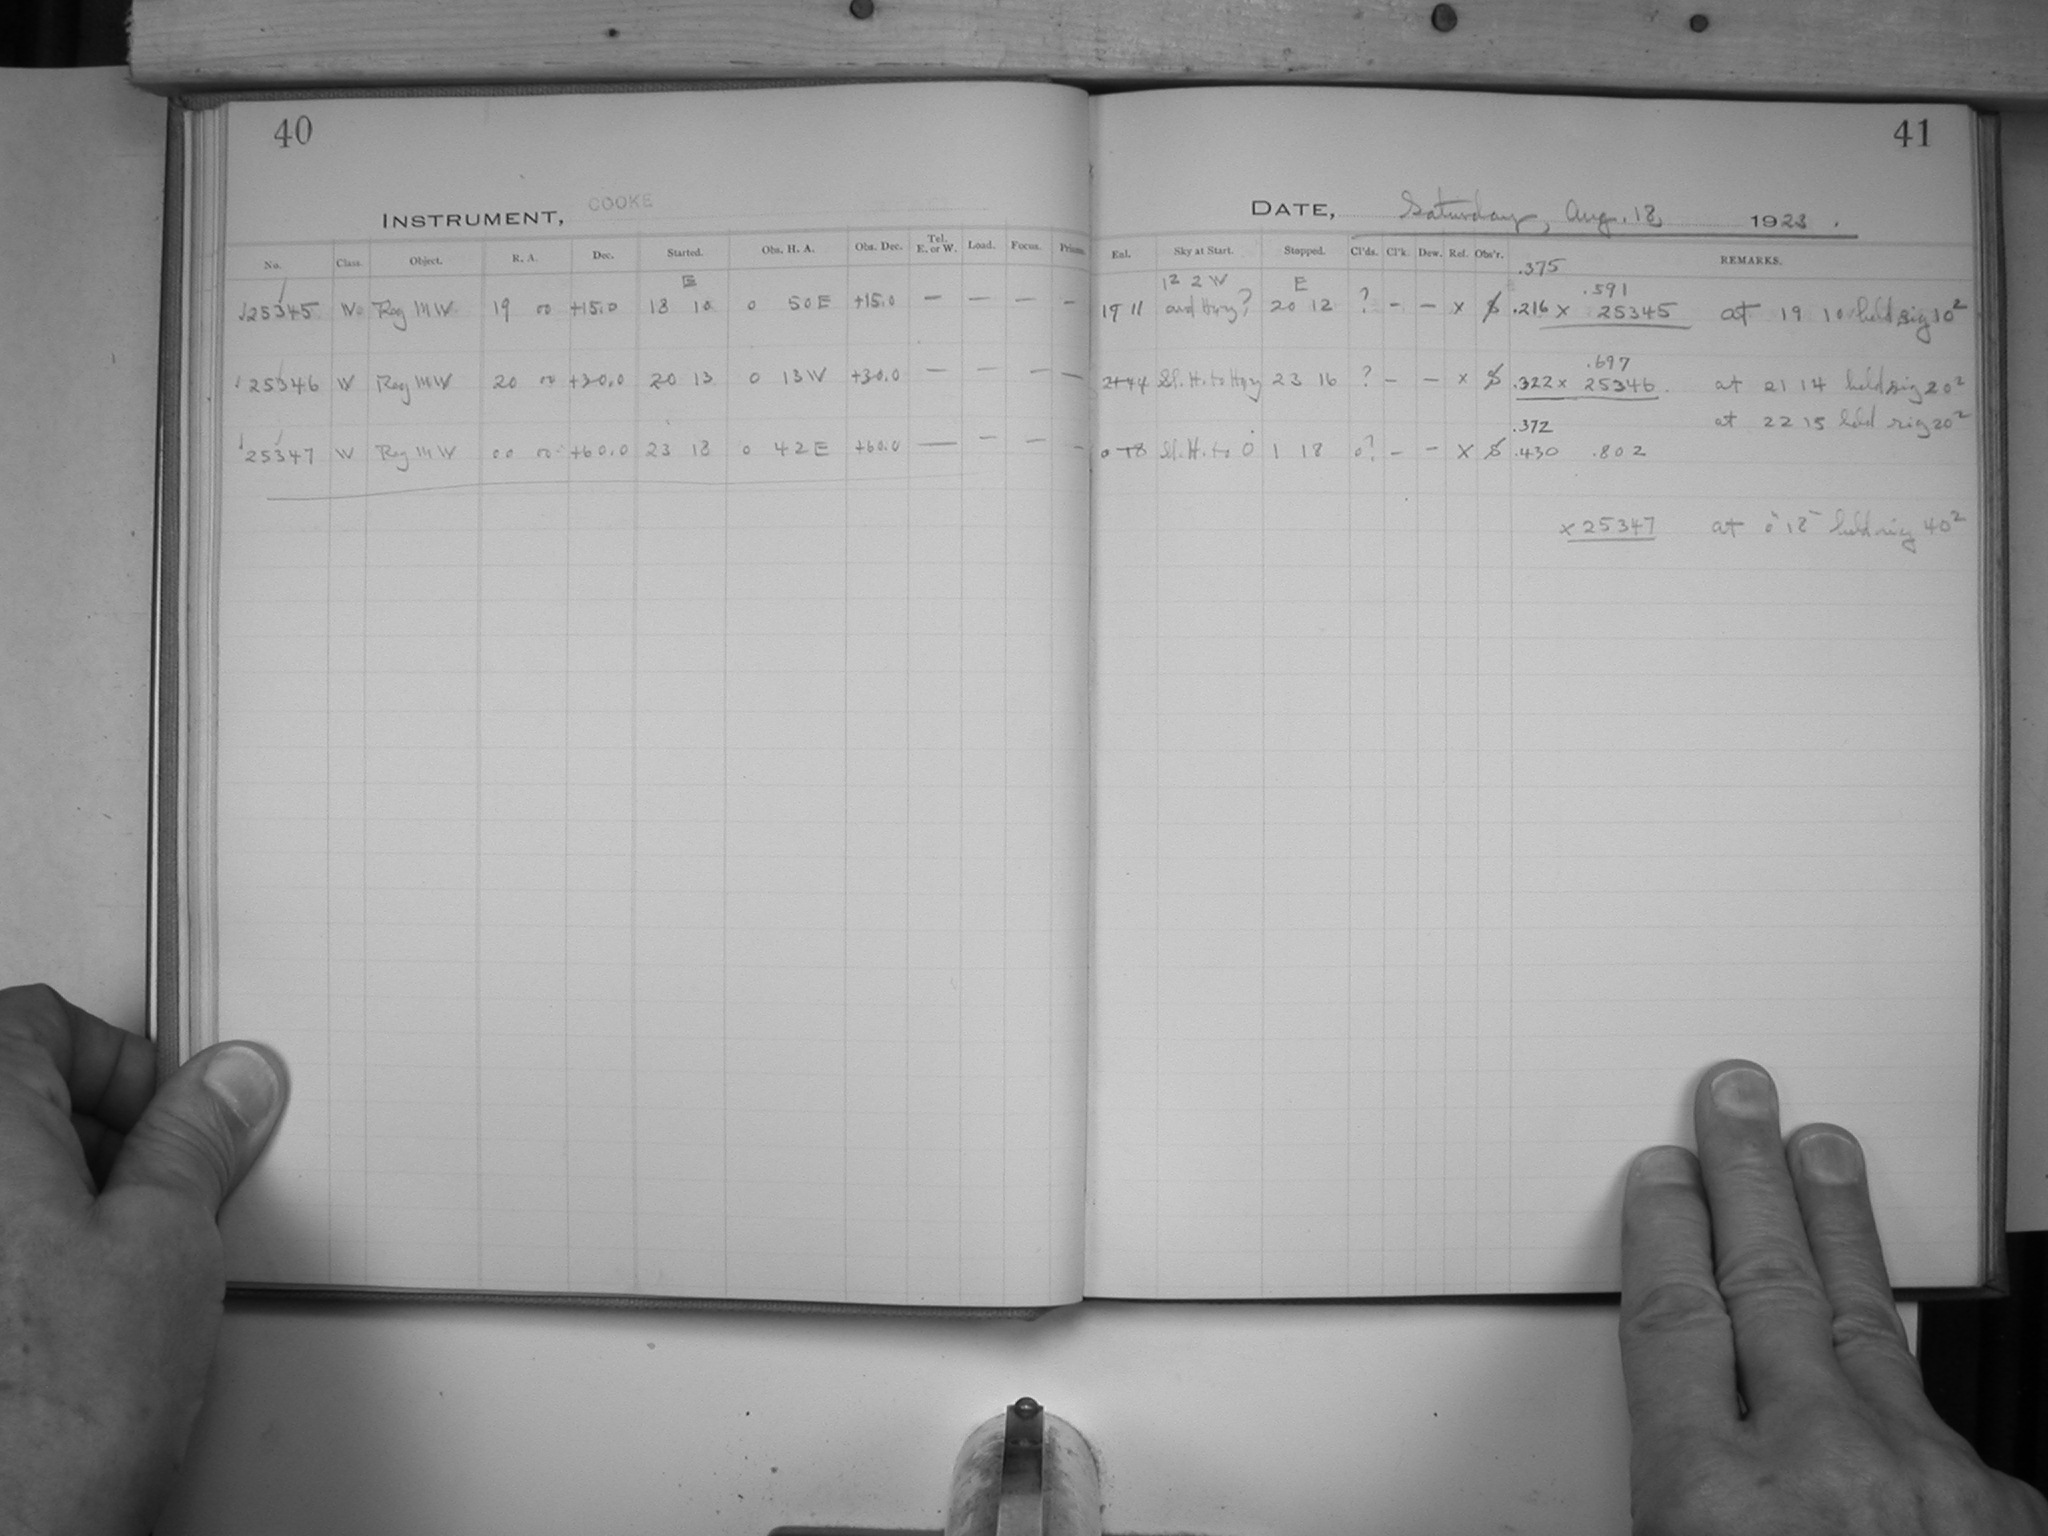 40
41
INSTRUMENT, COOKE
DATE, Saturday, Aug. 18, 1923.
No. Class. Object. R. A. Dec. Started. Obs. H. A. Obs. Dec. Tel. E. or W. Load. Focus. Prisms. Enl. Sky at Start. Stopped. Cl'ds. Cl'k. Dew. Ref. Obs'r. REMARKS.
E 12 2 W E .375
.591
25345 W Reg MW 19 00 +15.0 18 10 0 50 E +15.0 — — — — 19 11 and Hazy? 20 12 ? – – x .216 x 25345 at 19 10 held rig 10²
.697
25346 W Reg MW 20 00 +30.0 20 13 0 13 W +30.0 — — — — Sl. H. to Hzy 23 16 ? – – x .322 x 25346 at 21 14 held rig 20²
.372 at 22 15 held rig 20²
25347 W Reg MW 00 00 +60.0 23 18 0 42 E +60.0 — – – – Sl. H. to 0 1 18 0? – – x .430 .802
x 25347 at 0 18 held rig 40²